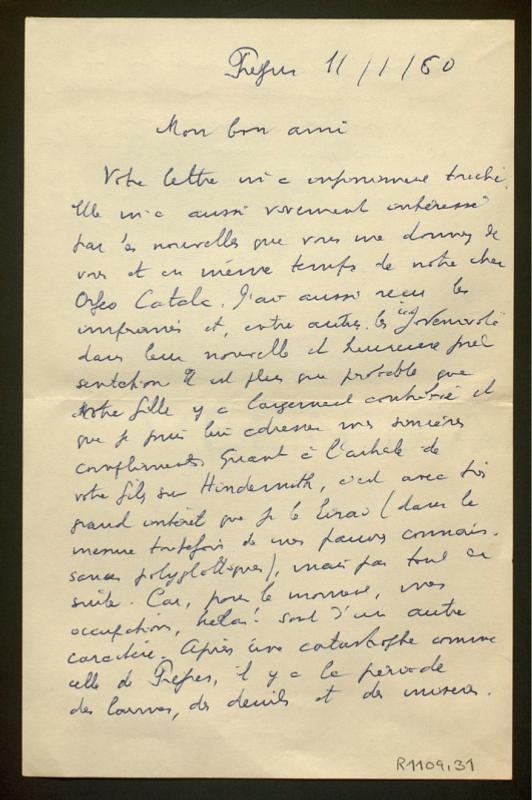 Fréjus 11/1/60
Mon bon ami
Votre lettre m'a infiniment touché.
Elle m'a aussi vivement intéressé
par les nouvelles que vous me donnez de
vous et en même temps de notre cher
Orfeo Catala. J'ai aussi reçu les
imprimés et, entre autres, les Joventut
dans leur nouvelle et heureuse pré
sentation. Il est plus que probable que
votre fille y a largement contribué et
que je puis lui adresser mes sincères
compliments. Quant à l'article de
votre fils sur Hindemith, c'est avec très
grand intérêt que je le lirai (dans la
mesure toutefois de mes pauvres connais-
sances polyglottiques), mais pas tout de
suite. Car, pour le moment, mes
occupations, hélas! sont d'un autre
caractère. Après une catastrophe comme
celle de Fréjus, il y a la période
des larmes, des deuils et des misères.
R1109,31